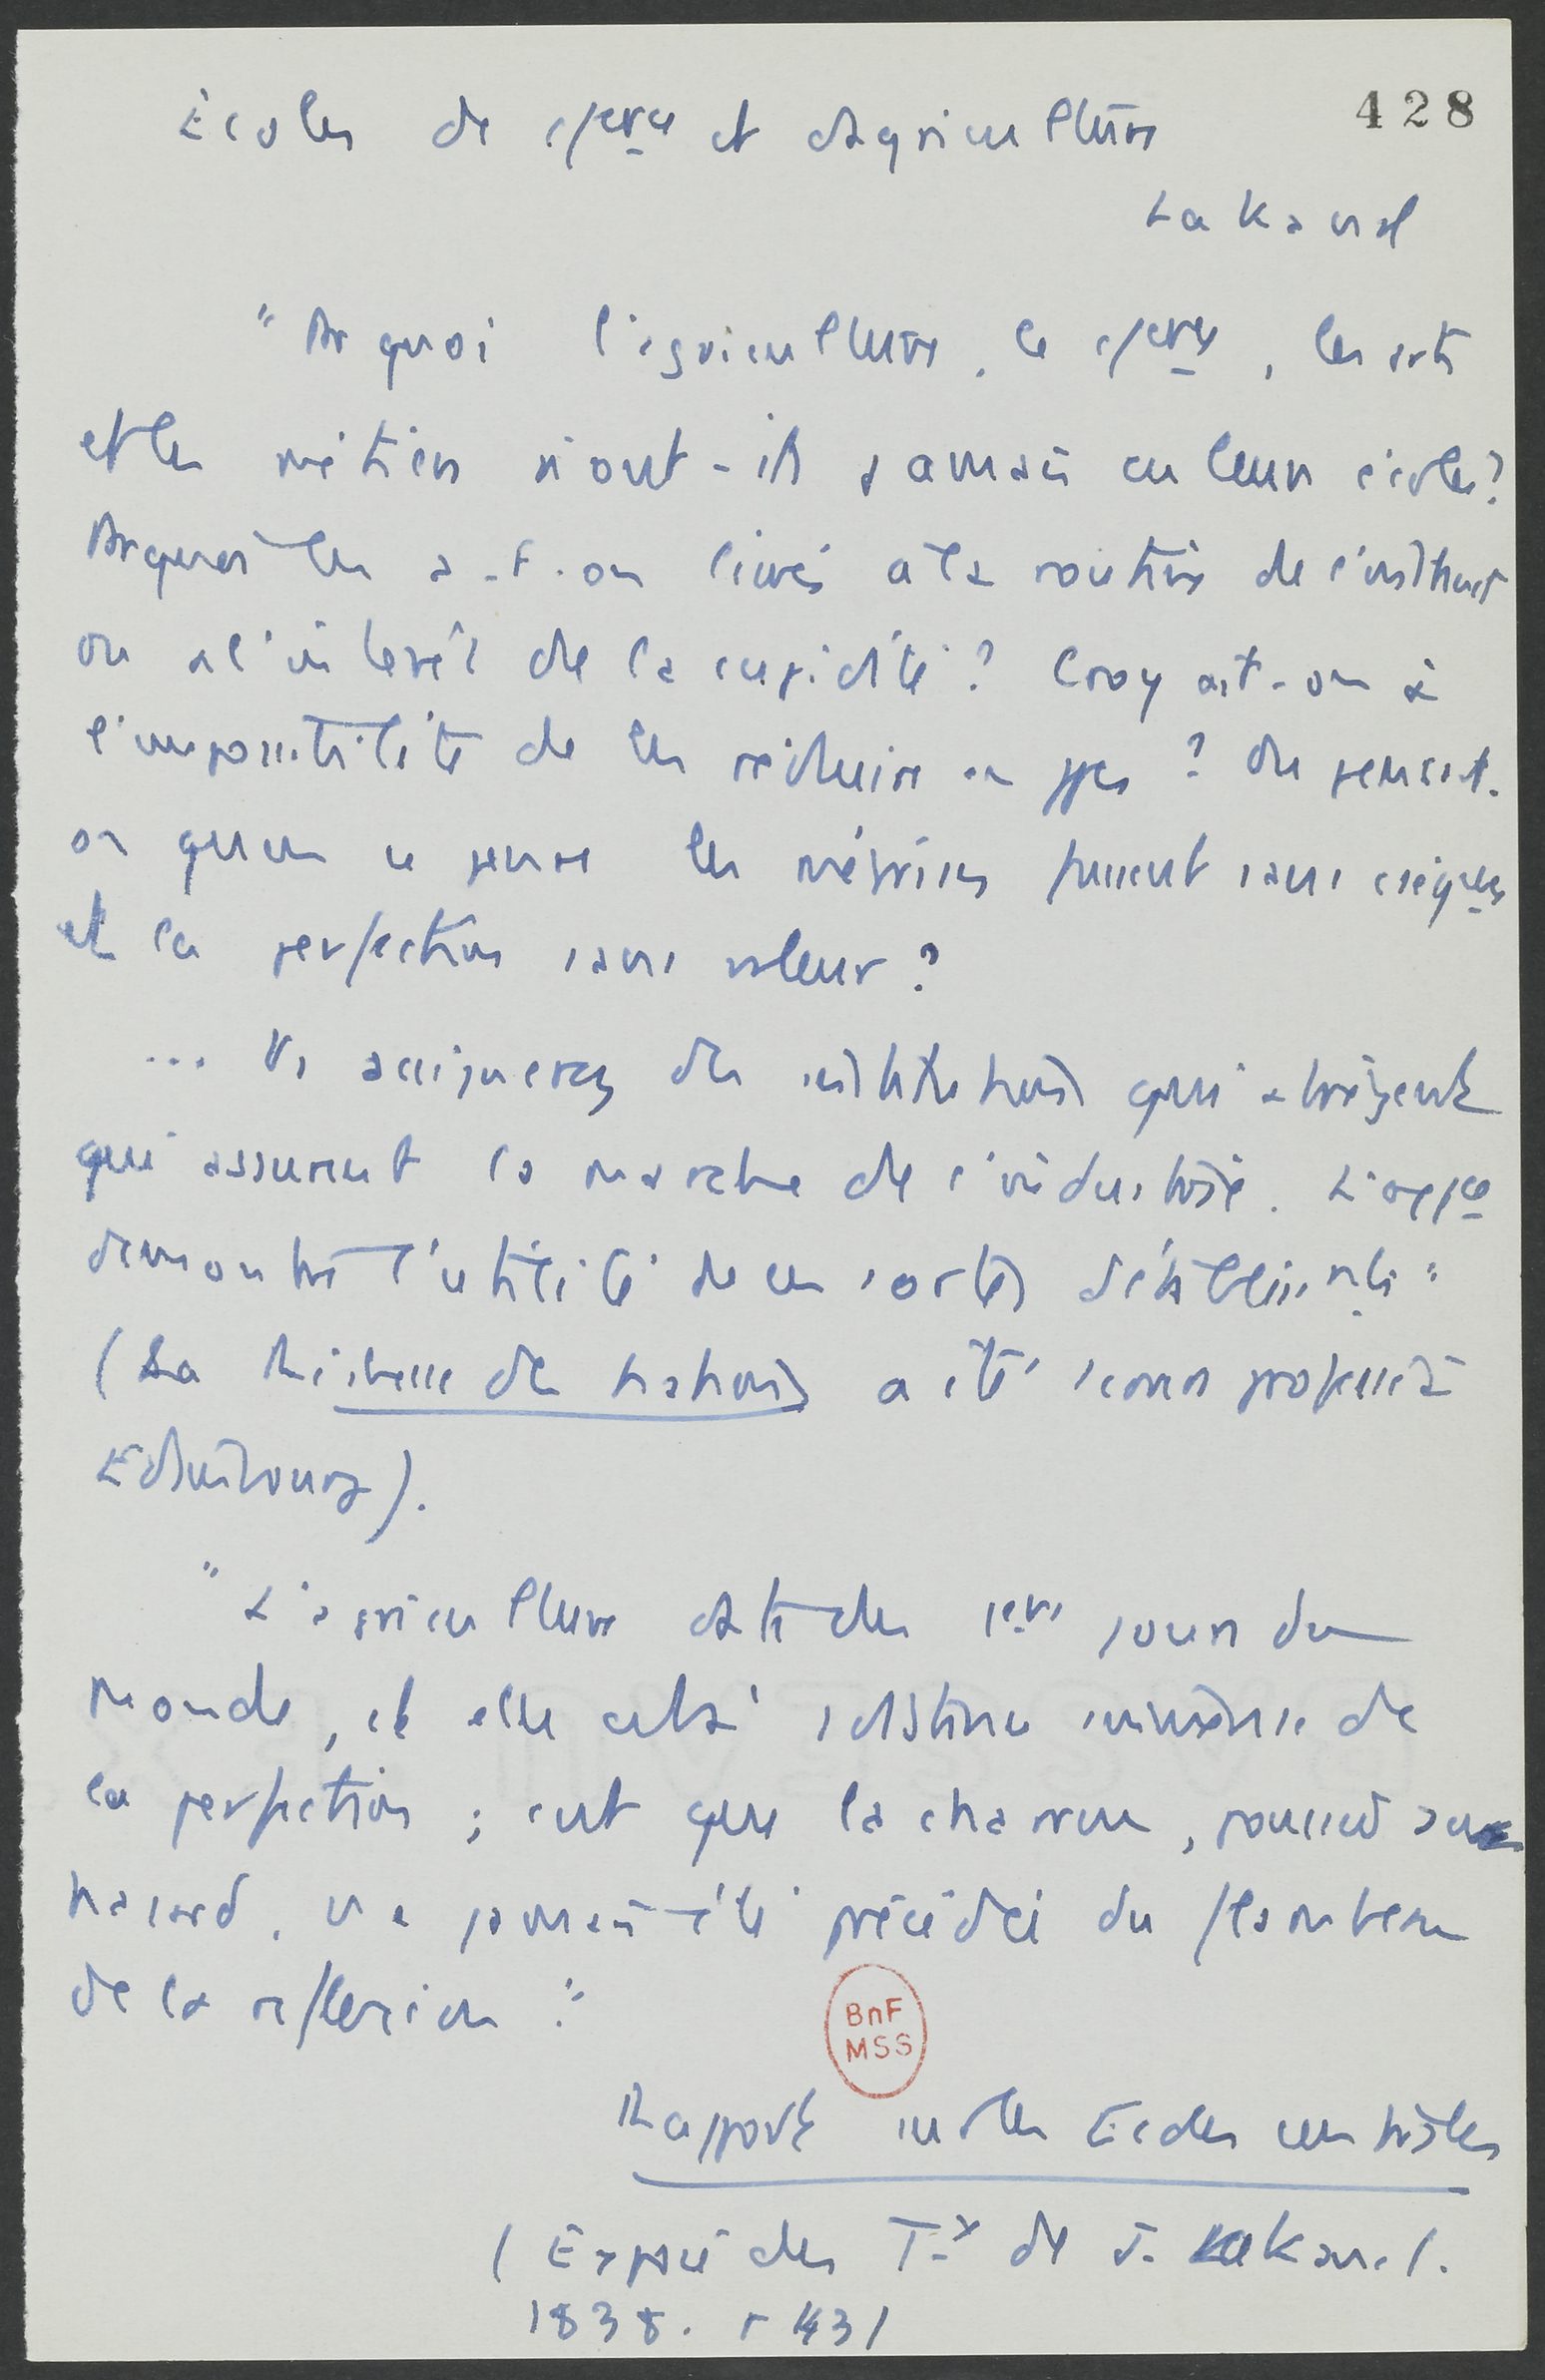 428
Écoles de cierce et d'agriculture
Lakanal
"Pr quoi l'agriculture, le cerce, les arts
et les métiers n'ont-ils jamais eu leurs écoles?
Pr quoi les a-t-on livrés à la routine de l'instinct
ou à l'intérêt de la cupidité? Croyait-on à
l'impossibilité de les réduire en ppes? Ou pensait-
on qu'en ce genre les méprises fussent sans
et la perfection sans valeur?
... Vs assignerez des institutions qui abrègent
qui assurent la marche de l'industrie. L'expce
démontre l'utilité de ces sortes d'établissmts"
(La Richesse des nations a été professé à
Edimbourg).
"L'agriculture date des 1ers jours du
Monde, et elle est à distance immense de
la perfection; c'est que la charrue, poussée au
hasard, n'a jamais été précédée du flambeau
de la réflexion."
BnF
MSS
Rapport sur les Écoles centrales
(Exposé des T.x de J. Lakanal.
1838. p 143)